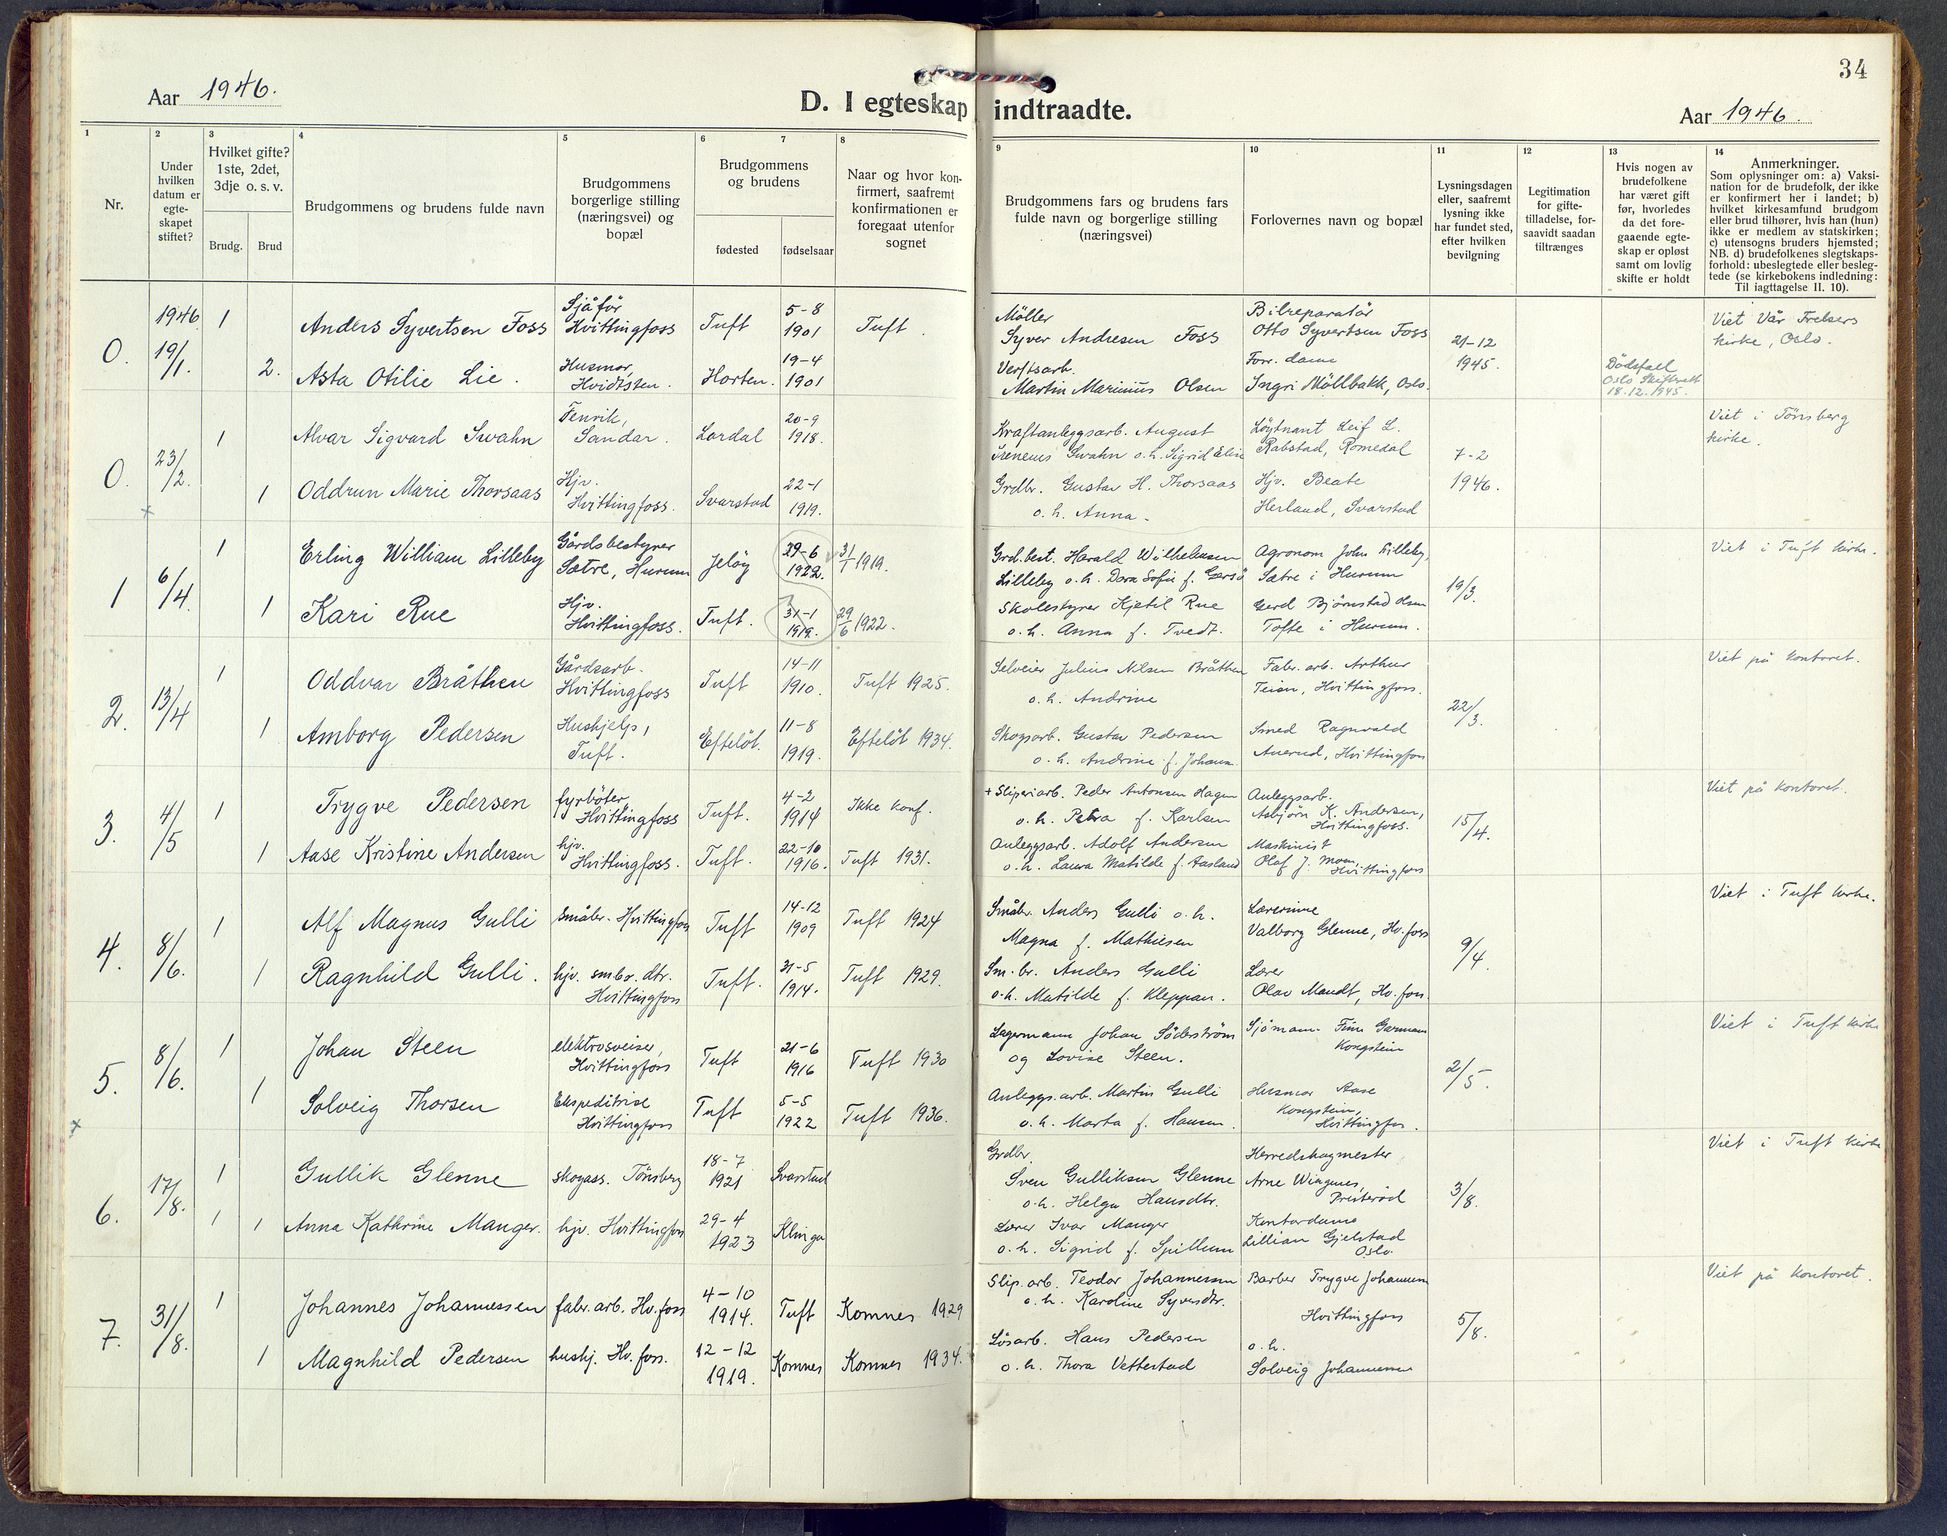 34
Aar 1946.
D. I egteskap indtraadte.
Aar 1946.
1
Nr.
2
Under hvilken datum er egteskapet stiftet?
3
Hvilket gifte? 1ste, 2det, 3dje o. s. v.
Brudg.
Brud
4
Brudgommens og brudens fulde navn
5
Brudgommens borgerlige stilling (næringsvei) og bopæl
6
7
Brudgommens og brudens
fødested
fødselsaar
8
Naar og hvor konfirmert, saafremt konfirmationen er foregaat utenfor sognet
9
Brudgommens fars og brudens fars fulde navn og borgerlige stilling (næringsvei)
10
Forlovernes navn og bopæl
11
Lysningsdagen eller, saafremt lysning ikke har fundet sted, efter hvilken bevilgning
12
Legitimation for giftetilladelse, forsaavidt saadan tiltrænges
13
Hvis nogen av brudefolkene har været gift før, hvorledes da det foregaaende egteskap er opløst samt om lovlig skifte er holdt
14
Anmerkninger.
Som oplysninger om: a) Vaksination for de brudefolk, der ikke er konfirmert her i landet; b) hvilket kirkesamfund brudgom eller brud tilhører, hvis han (hun) ikke er medlem av statskirken; c) utensogns bruders hjemsted; NB. d) brudefolkenes slegtskapsforhold: ubeslegtede eller beslegtede (se kirkebokens indledning: Til iagttagelse II. 10).
0. 1946 19/1. 1 Anders Syvertsen Foss Sjåfør Hvittingfoss Tuft 5-8 1901 Tuft.
Møller Syver Andresen Foss Bilreparatør Otto Syvertsen Foss 21-12 1945. Viet Vår Frelsers kirke, Oslo.
2. Asta Otilie Lie. Husmor, Hvidtsten. Horten. 19-4 1901
Verftsarb. Martin Marinius Olsen Forr. dame Ingri Møllbakk, Oslo. Dødsfall Oslo Skifterett 18.12.1945.
0. 23/2. 1 Alvar Sigvard Swahn Fenrik, Sandar. Lardal 20-9 1918.
Kraftanleggsarb. August Ireneus Swahn o.h. Sigrid Elise Løytnant Leif L. Rabstad, Romedal 7-2 1946. Viet i Tønsberg kirke.
1 Oddrun Marie Thorsaas Hjv. Hvittingfoss. Svarstad 22-1 1919.
Grdbr. Gustav H. Thorsaas o.h. Anna. Hjv. Beate Herland, Svarstad
1 6/4. 1 Erling William Lilleby Gårdsbestyrer Sætre, Hurum Jeløy 29-6 1922. 31/1 1919.
Grd.best. Harald Wilhelmsen Lilleby o.h. Dora Sofie f. Gersø Agronom John Lilleby, Sætre i Hurum 19/3. Viet i Tuft kirke.
1 Kari Rue Hjv. Hvittingfoss. Tuft. 31-1 1919. 29/6 1922.
Skolestyrer Kjetil Rue o.h. Anna f. Tvedt. Gerd Bjørnstad Olsen Tofte i Hurum.
2. 13/4 1 Oddvar Bråthen Gårdsarb. Hvittingfoss Tuft 14-11 1910. Tuft 1925.
Selveier Julius Nilsen Bråthen o.h. Andrine Fabr. arb. Arthur Teien, Hvittingfoss. 22/3. Viet på kontoret.
1 Amborg Pedersen Hushjelp, Tuft. Efteløt. 11-8 1919. Efteløt 1934.
Skogsarb. Gustav Pedersen o.h. Andrine f. Johans. Smed Ragnvald Auerud, Hvittingfoss
3. 4/5 1 Trygve Pedersen fyrbøter, Hvittingfoss Tuft. 4-2 1914 Ikke konf.
+ Sliperiarb. Peder Antonsen Hagen o.h. Petra f. Karlsen Anleggsarb. Asbjørn K. Andersen, Hvittingfoss. 15/4. Viet på kontoret.
1 Aase Kristine Andersen hjv. Hvittingfoss. Tuft. 22-10 1916. Tuft 1931.
Anleggsarb. Adolf Andersen o.h. Laura Matilde f. Aasland Maskinist Olaf J. Moen, Hvittingfoss
4. 8/6. 1 Alf Magnus Gulli småbr. Hvittingfoss Tuft 14-12 1909 Tuft 1924
Småbr. Anders Gulli o.h. Magna f. Mathiesen Lærerinne Valborg Glenne, Hv.foss 9/4. Viet i Tuft kirke.
1 Ragnhild Gulli. hjv. smbr. dtr. Hvittingfoss Tuft. 31-5 1914. Tuft 1929.
Sm.br. Anders Gulli o.h. Matilde f. Kleppan. Lærer Olav Mandt, Hv.foss.
5. 8/6. 1 Johan Steen elektrosveiser, Hvittingfoss Tuft 21-6 1916 Tuft 1930
Lagermann Johan Söderström og Lovise Steen. Sjömann Finn Garmann Kongstein 2/5. Viet i Tuft kirke
1 Solveig Thorsen Ekspeditrise Hvittingfoss Tuft 5-5 1922 Tuft 1936.
Anleggs.arb. Martin Gulli o.h. Marta f. Hansen. Husmor Aase Kongstein, Hvittingfoss.
6. 17/8. 1 Gullik Glenne skogass. Tönsberg 18-7 1921 Svarstad
Grdbr. Sven Gulliksen Glenne o.h. Helga Hansdtr. Herredskogmester Arne Wingnes, Presterød 3/8. Viet i Tuft kirke
1 1 Anna Kathrine Manger. hjv. Hvittingfoss 29-4 1923 Klinga
Lærer Ivar Manger o.h. Sigrid f. Spillum Kontordame Lillian Gjelstad Oslo.
7. 31/8. 1 Johannes Johannessen fabr. arb. Hv.foss 4-10 1914. Tuft Komnes 1929
Slip. arb. Teodor Johannessen o.h. Karoline Syversdtr. Barber Trygve Johannessen Hvittingfoss 5/8. Viet på kontoret.
1 Magnhild Pedersen hushj. Hv.foss. 12-12 1919. Komnes Komnes 1934.
Løsarb. Hans Pedersen o.h. Thora Vettestad o.h. Solveig Johannessen